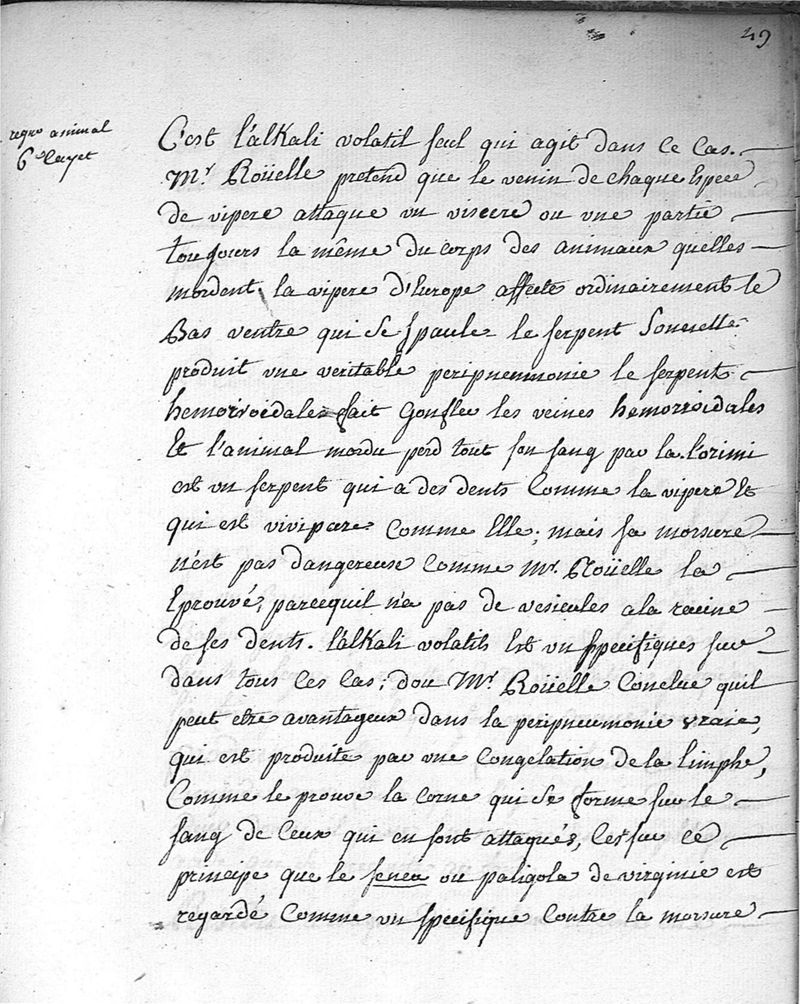 49
regne animal
6e cayet
C'est l'alKali volatil seul qui agit dans ce cas.
Mr. Roüelle pretend que le venin de chaque Espece
de vipere attaque un viscere ou une partie
tougours la même du corps des animaux quelles
mordent, la vipere d'Europe affecte ordinairement le
Bas ventre qui se le serpent Sonnette
produit une veritable peripneumonie le serpent
hemorroidales fait Gonfler les veines hemorroidales
Et l'animal mordu perd tout son sang par la. l'orimi
est un serpent qui a des dents Comme la vipere Et
qui est vivipare Comme Elle; mais sa morsure
n'est pas dangereuse Comme Mr. Roüelle la
Eprouvé, parcequil n'a pas de vesicules a la racine
de ses dents. l'alKali volatils Est un specifiques sur
dans tous ces Cas; dou Mr Roüelle Conclue quil
peut etre avantageux dans la peripneumonie vraie,
qui est produite par une Congelation de la limphe,
Comme le prouve la Corne qui se forme sur le
sang de Ceux qui en sont attaqués, C'est sur ce
principe que le seneca ou paligola de virginie est
regardé Comme un specifique Contre la morsure